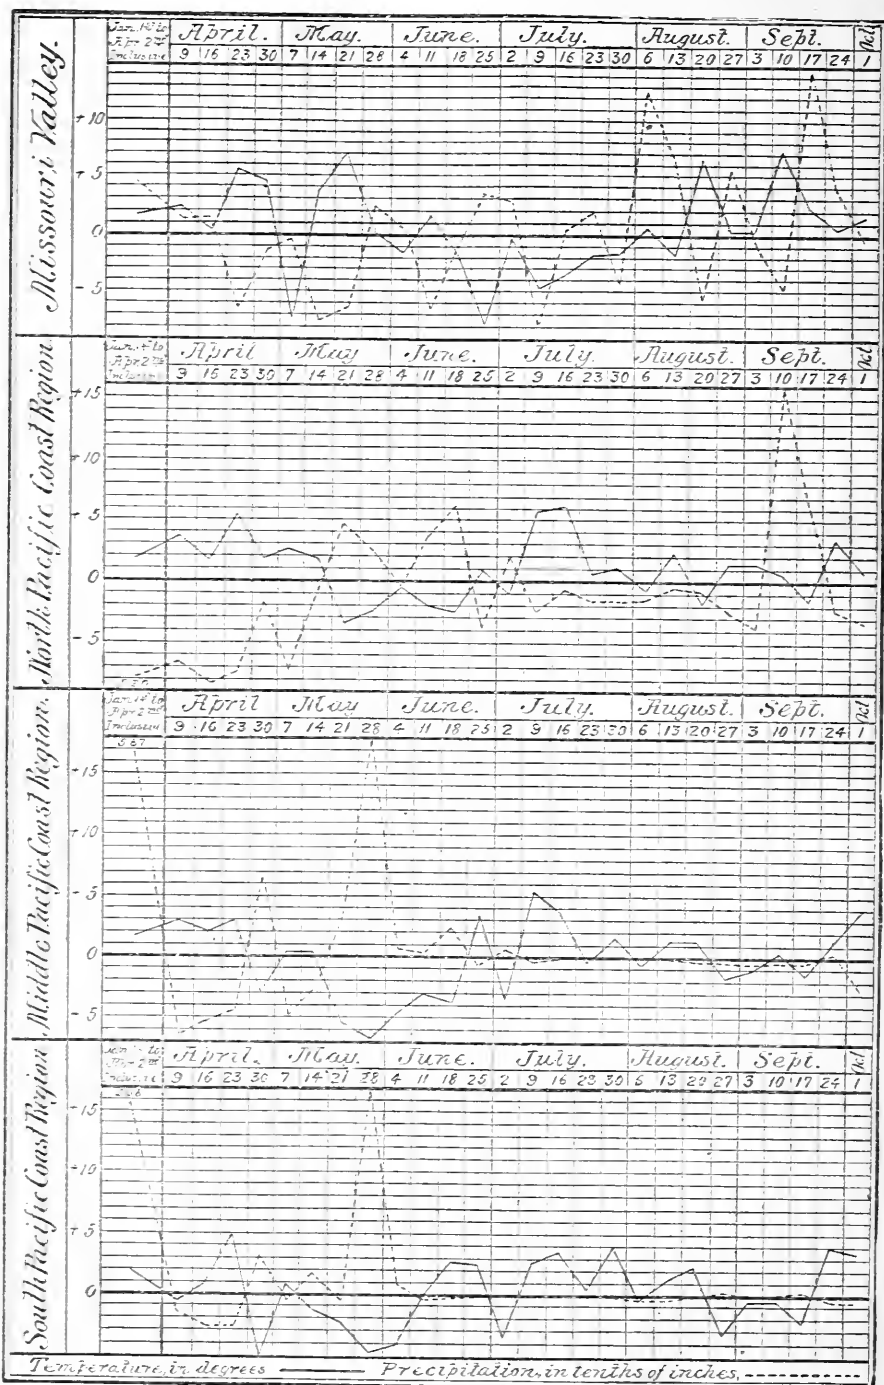 Missouri Valley.
Jan. 1st to Apr 2nd Inclusive
April. May. June. July. August. Sept. Oct
9 16 23 30 7 14 21 28 4 11 18 25 2 9 16 23 30 6 13 20 27 3 10 17 24 1
+10
+5
0
-5
North Pacific Coast Region.
Jan. 1st to Apr 2nd Inclusive
April May June. July. August. Sept. Oct
9 16 23 30 7 14 21 28 4 11 18 25 2 9 16 23 30 6 13 20 27 3 10 17 24 1
+15
+10
+5
0
-5
Middle Pacific Coast Region.
Jan 1st to Apr 2nd Inclusive
April May June. July. August. Sept. Oct
9 16 23 30 7 14 21 28 4 11 18 25 2 9 16 23 30 6 13 20 27 3 10 17 24 1
5.67
+15
+10
+5
0
-5
South Pacific Coast Region
Jan 1st to Apr 2nd Inclusive
April. May. June. July. August. Sept. Oct
9 16 23 30 7 14 21 28 4 11 18 25 2 9 16 23 30 6 13 20 27 3 10 17 24 1
+15
+10
+5
0
Temperature, in degrees Precipitation, in tenths of inches.